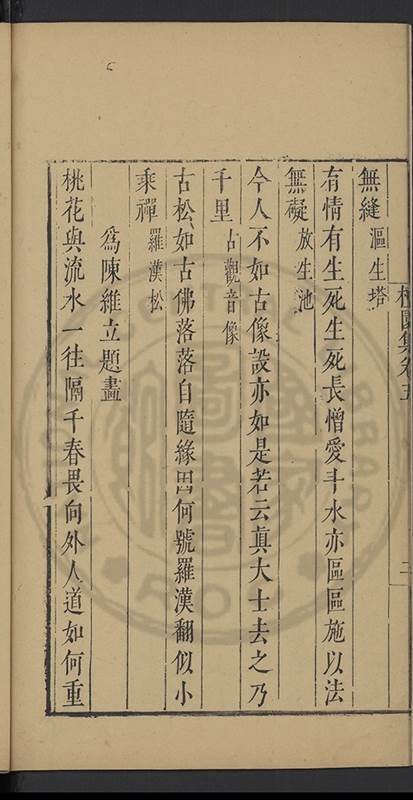 無縫 漚生塔
有情有生死生死長憎愛斗水亦區區施以法
無礙 放生池
今人不如古像設亦如是若云眞大士去之乃
千里 古觀音像
古松如古佛落落自隨緣因何號羅漢翻似小
乘禪 羅漢松
爲陳維立題畫
桃花與流水一往隔千春畏向外人道如何重